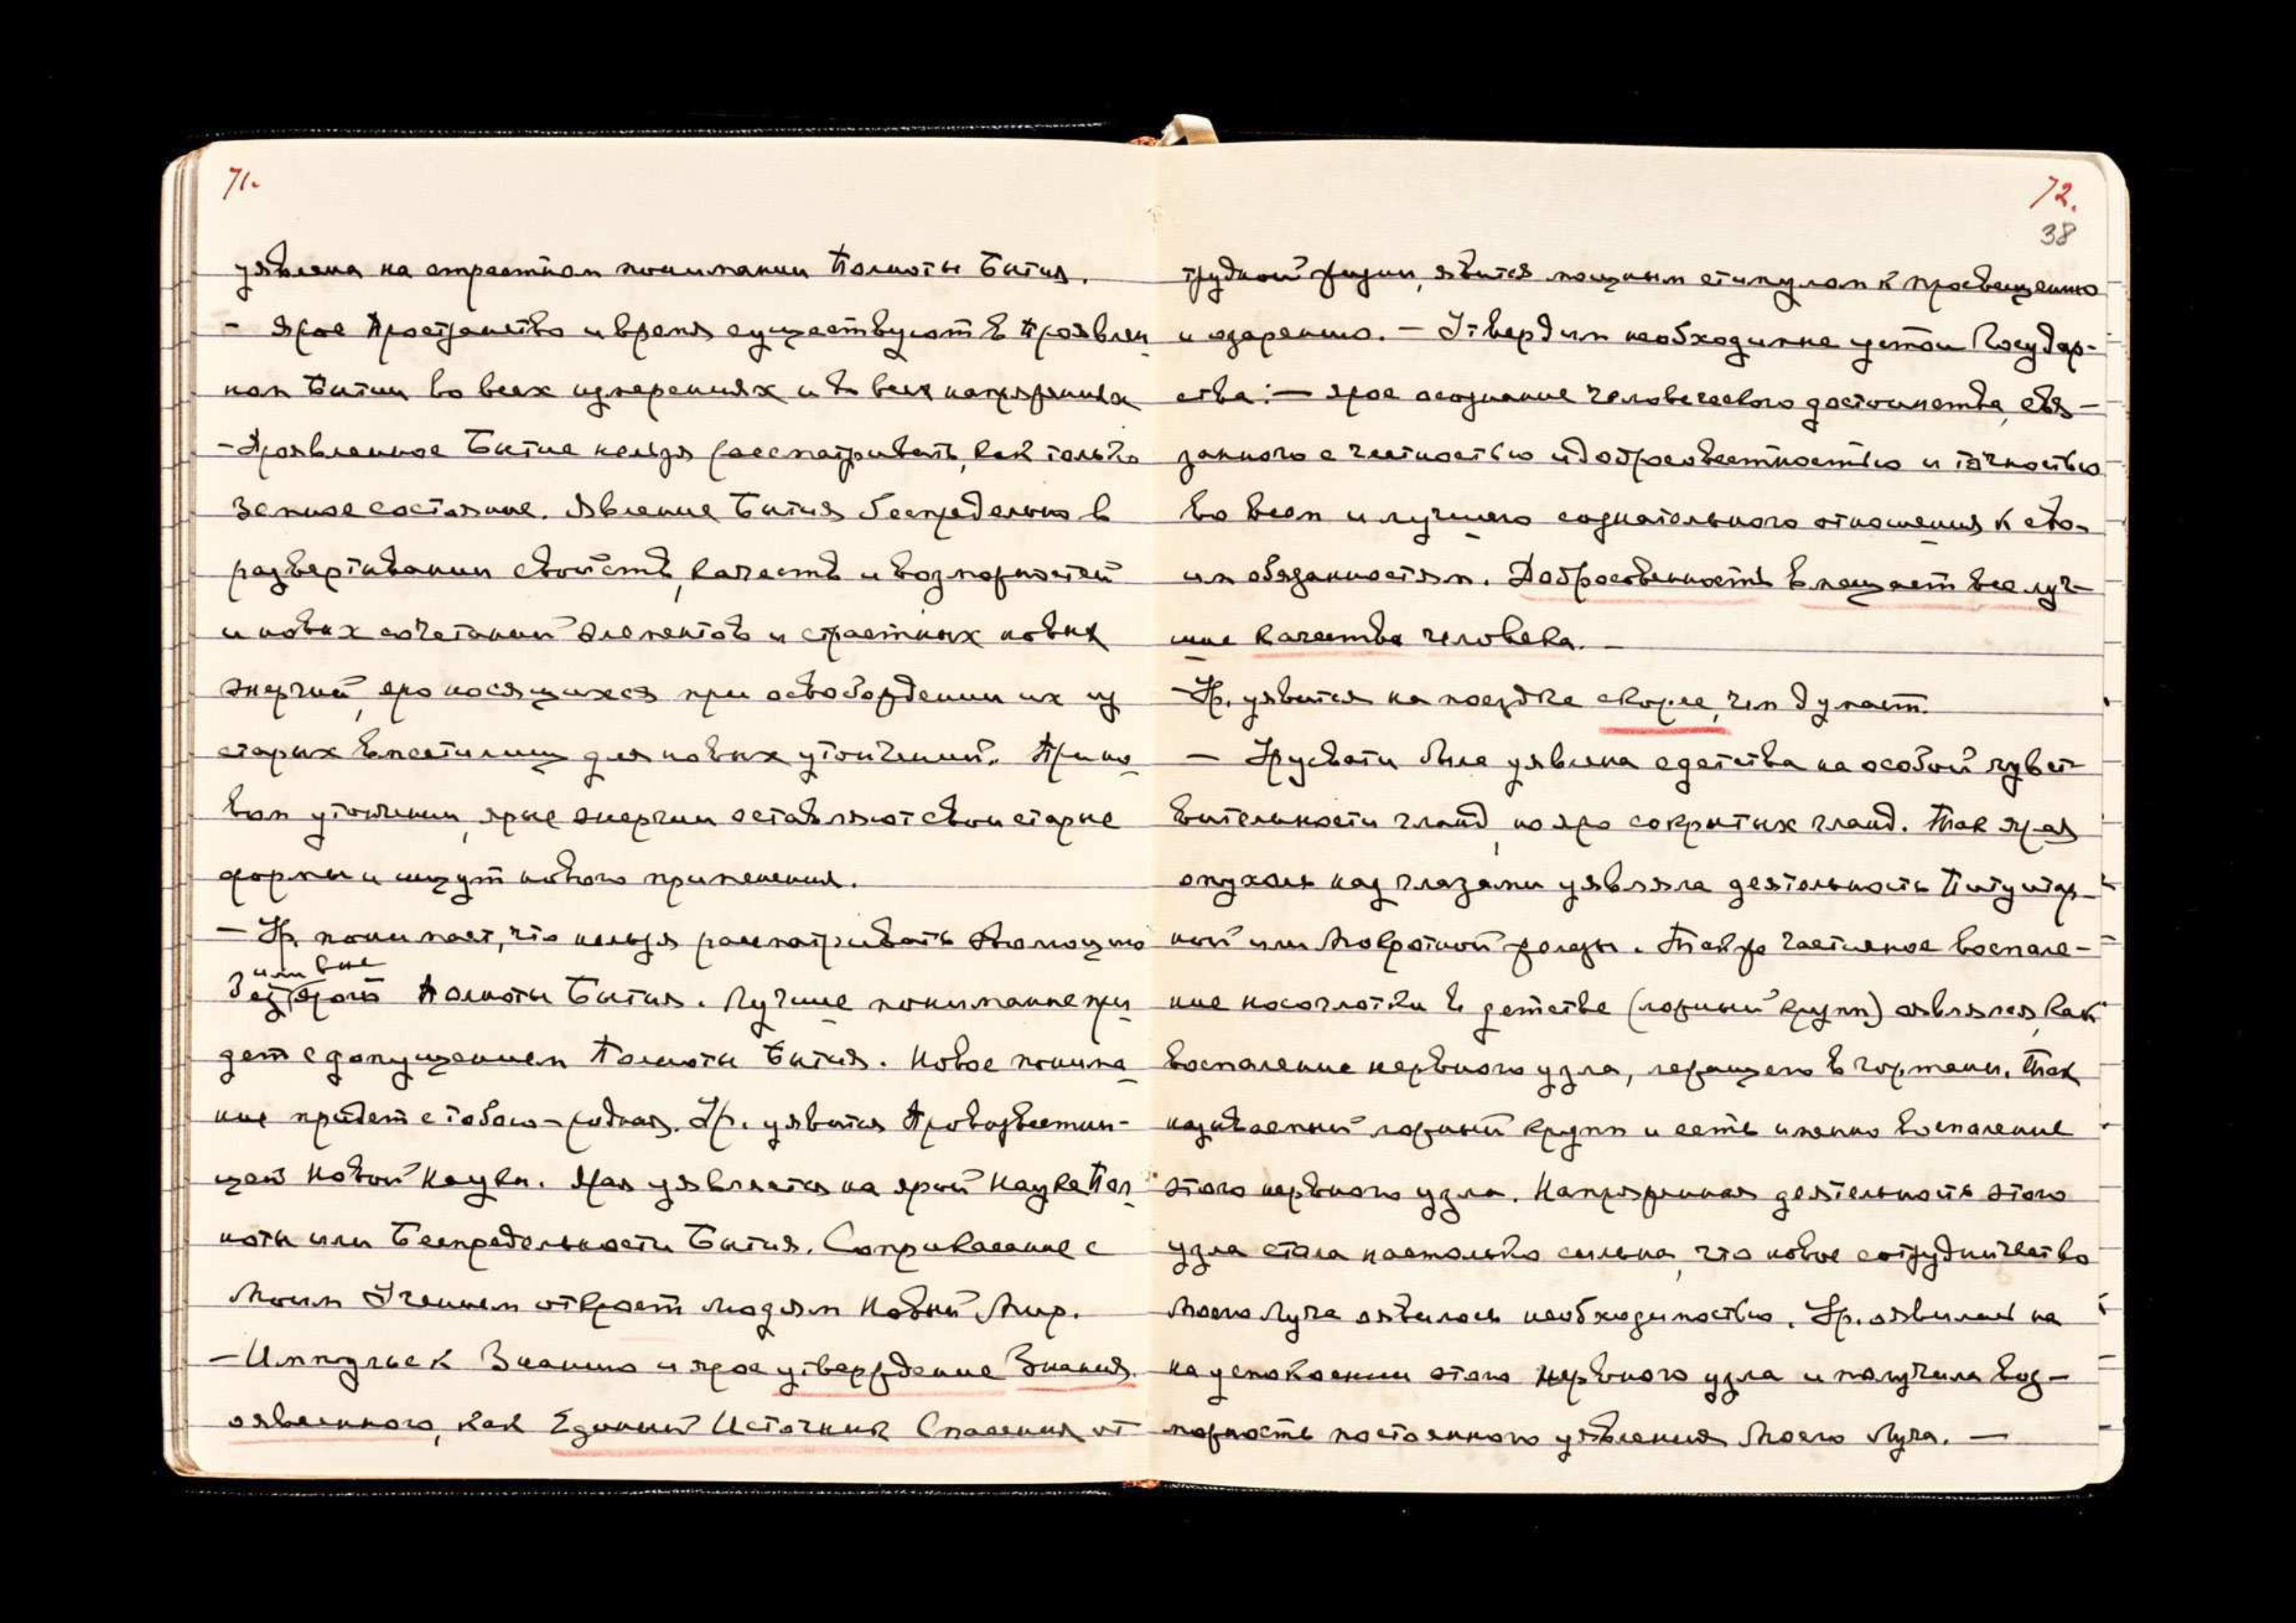 71.
уявлена на страстном понимании Полноты Бытия.
– Ярое Пространство и время существуют в Проявлен
ном Бытии во всех измерениях и в всех напряжениях
– Проявленное Бытие нельзя рассматривать, как только
земное состояние. Явление Бытия беспредельно в
развертывании свойств, качеств и возможностей
и новых сочетаний элементов и страстных новых
энергий, яро носящихся при освобождении их из
старых вместилищ для новых утончений. При но
вом утончении, ярые энергии оставляют свои старые
формы и ищут нового применения.
– Ур. понимает, что нельзя рассматривать Эволюцию
или вне
без ярой Полноты Бытия. Лучшее понимание при
дет с допущением Полноты Бытия. Новое понима
ние придет с тобою – родная. Ур. уявится Провозвестни-
цей Новой Науки. Ярая уявляется на ярой Науке Пол
ноты или Беспредельности Бытия. Соприкасание с
Моим Учением откроет людям Новый Мир.
– Импульс к Знанию и ярое утверждение Знания
оявленного, как Единый Источник Спасения от
72.
38
трудной жизни, явится мощным стимулом к просвещению
и озарению. – Утвердим необходимые устои Государ-
ства: – ярое осознание человеческого достоинства, свя-
занного с честностью и добросовестностью и точностью
во всем и лучшего сознательного отношения к сво-
им обязанностям. Добросовестность вмещает все луч-
шие качества человека. –
– Ур. уявится на поездке скорее, чем думает.
– Урусвати была уявлена с детства на особой чувст-
вительности гланд, но яро сокрытых гланд. Так ярая
опухоль над глазами уявляла деятельность Питуитар-
ной или Мокротной железы. Также частичное воспале-
ние носоглотки в детстве (ложный круп) оявлялся, как
воспаление нервного узла, лежащего в гортани. Так
называемый ложный круп и есть именно воспаление
этого нервного узла. Напряженная деятельность этого
узла стала настолько сильна, что новое сотрудничество
Моего Луча оявилось необходимостью. Ур. оявилась на
на успокоении этого нервного узла и получила воз-
можность постоянного уявления Моего Луча. –